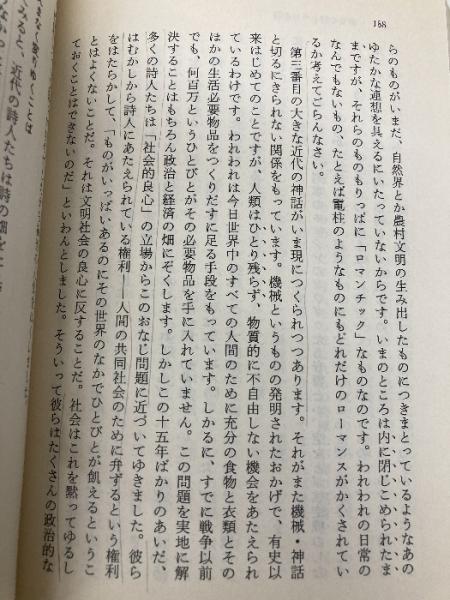 168
らのものが、いまだ、自然界とか農村文明の生み出したものにつきまとっているようなあの
ゆたかな連想を具えるにいたっていないからです。いまのところは内に閉じこめられたま
まですが、それらのものもりっぱに「ロマンチック」なものなのです。われわれの日常の
なんでもないもの、たとえば電柱のようなものにもどれだけのローマンスがかくされてい
るか考えてごらんなさい。
第三番目の大きな近代の神話がいま現につくられつつあります。それがまた機械・神話
と切るにきられない関係をもっています。機械というものの発明されたおかげで、有史以
来はじめてのことですが、人類はひとり残らず、物質的に不自由しない機会をあたえられ
ているわけです。われわれは今日世界中のすべての人間のために充分の食物と衣類とその
ほかの生活必要物品をつくりだすに足る手段をもっています。しかるに、すでに戦争以前
でも、何百万というひとびとがその必要物品を手に入れていません。この問題を実地に解
決することはもちろん政治と経済の畑にぞくします。しかしこの十五年ばかりのあいだ、
多くの詩人たちは「社会的良心」の立場からこのおなじ問題に近づいてゆきました。彼ら
はむかしから詩人にあたえられている権利――人間の共同社会のために弁ずるという権利
をはたらかして、「ものがいっぱいあるのにその世界のなかでひとびとが飢えるというこ
とはよくないことだ。それは文明社会の良心に反することだ。社会はこれを黙ってゆるし
ておくことはできないのだ」といわんとしました。そういって彼らはたくさんの政治的な
まなく変りぬくことは
みると、近代の詩人たちは詩の畑を